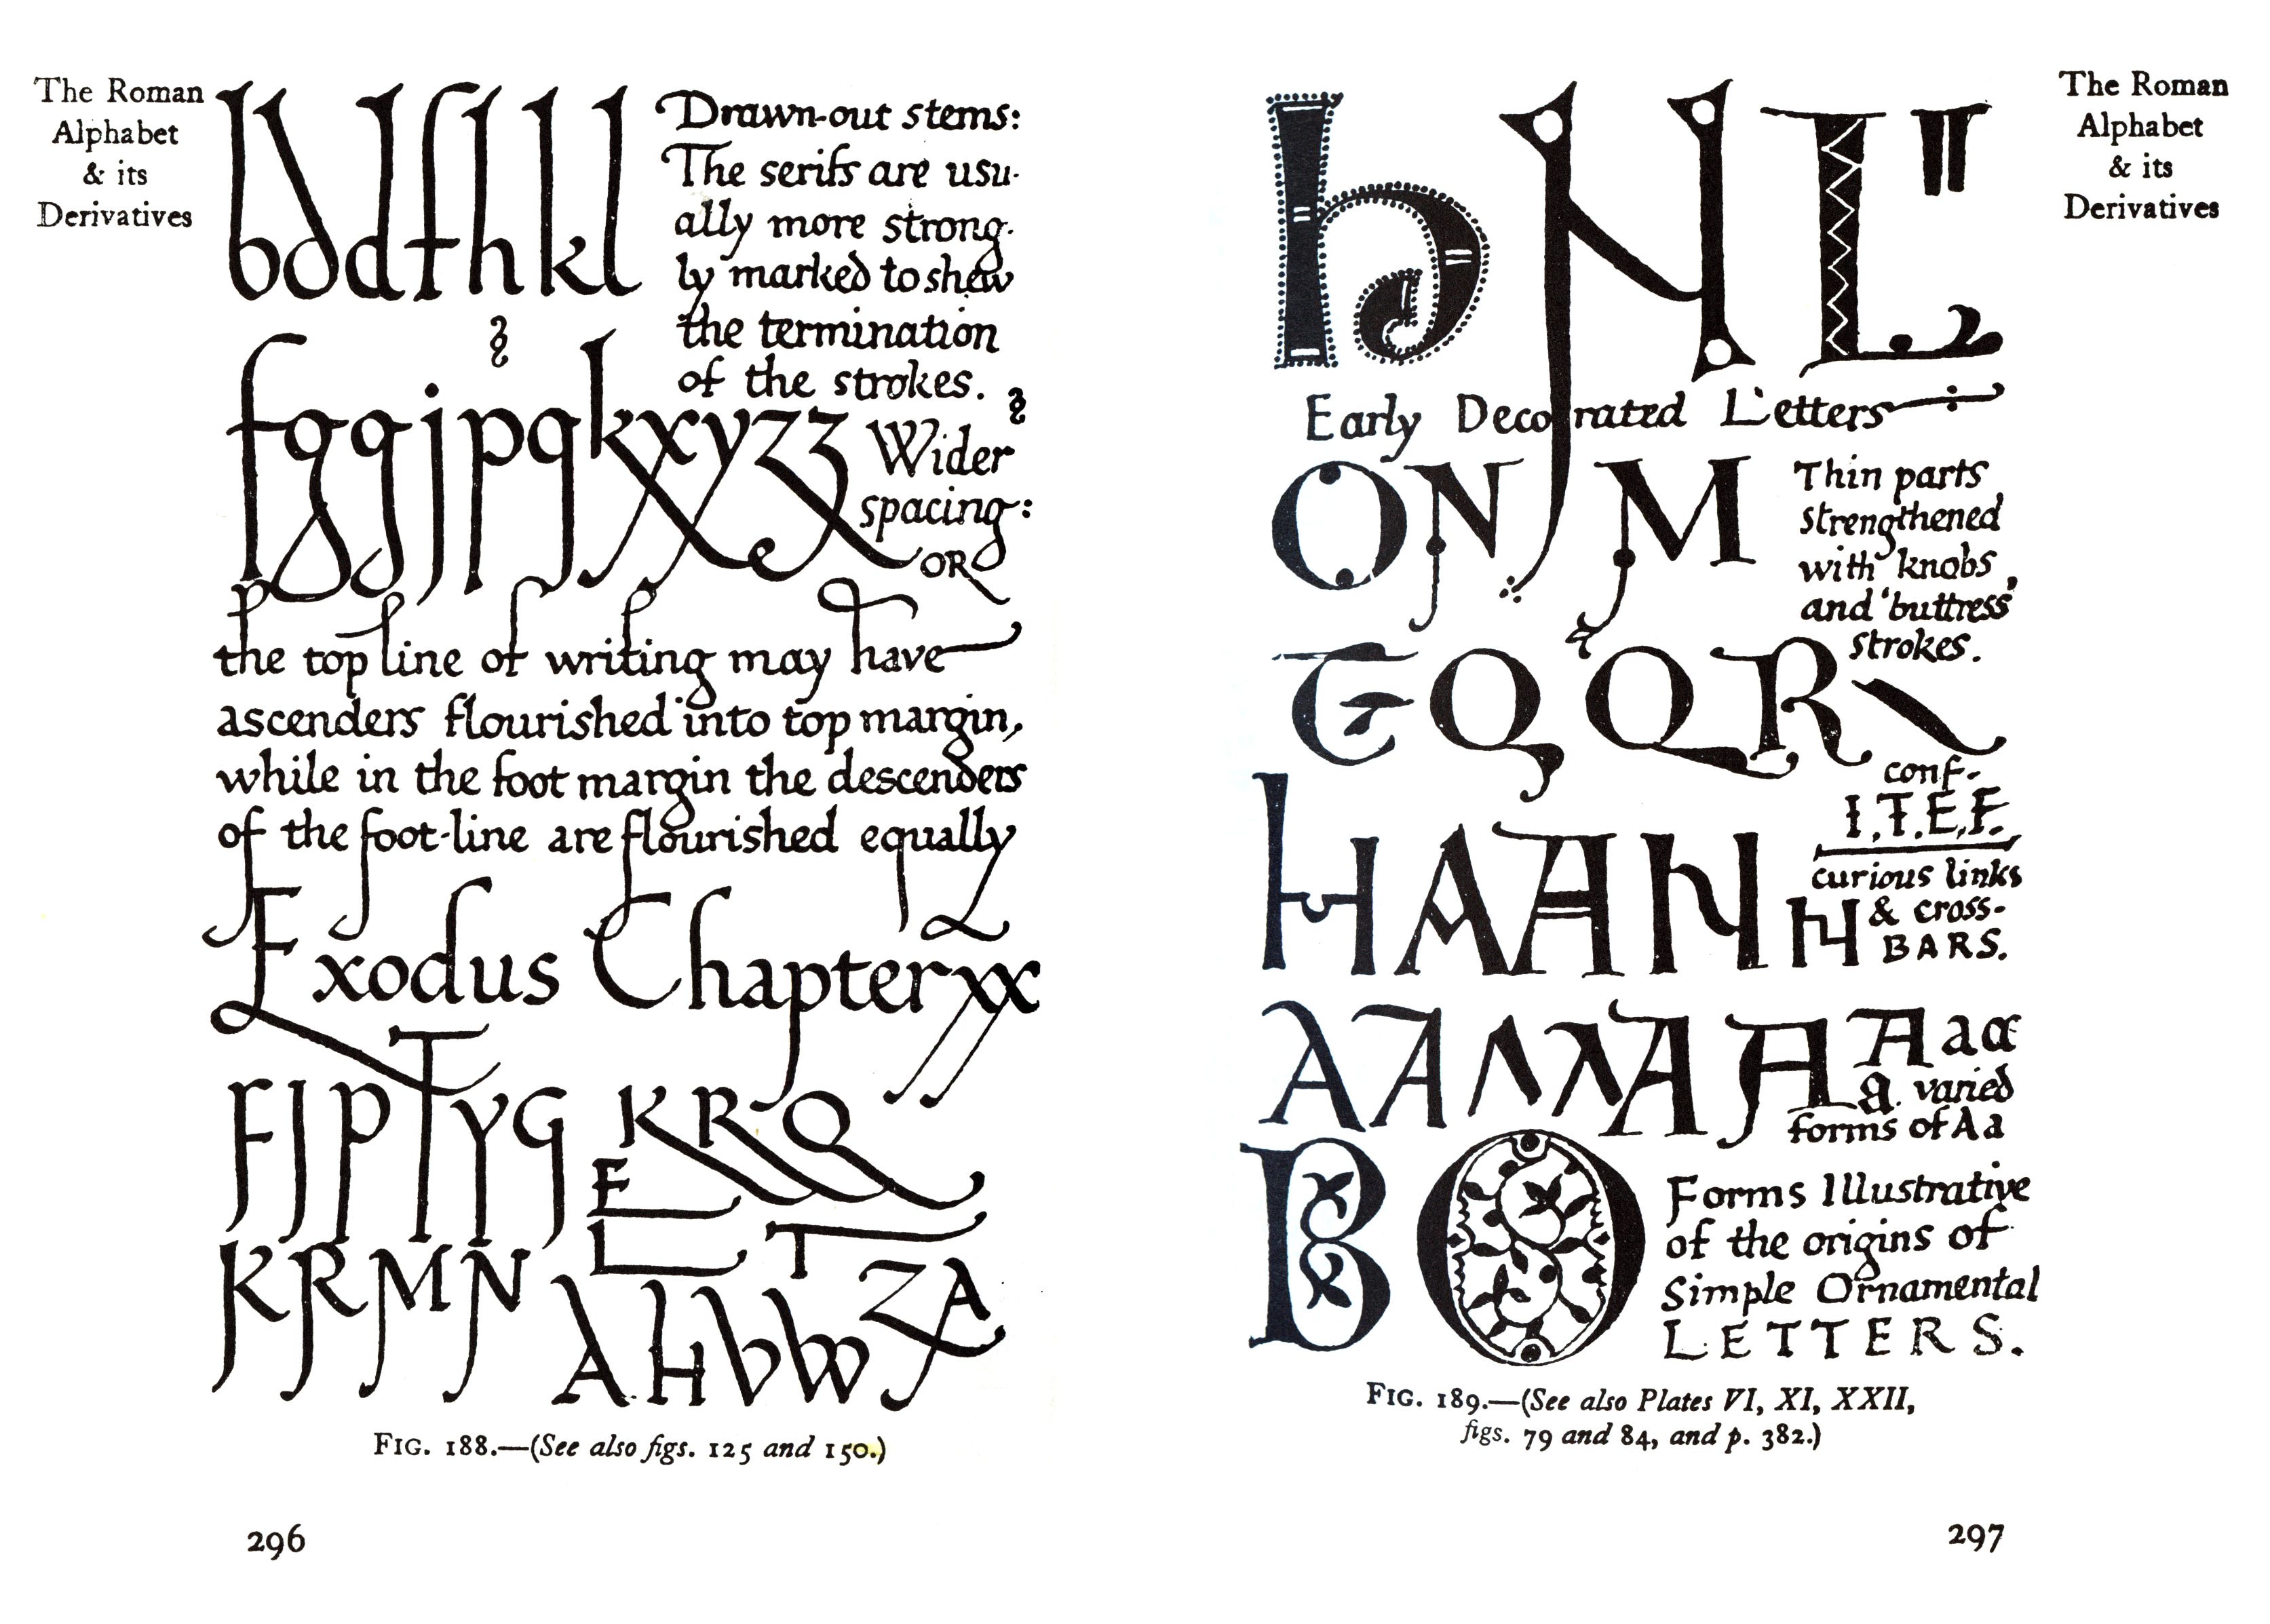 The Roman
Alphabet
& its
Derivatives
bddfhkl
Drawn-out stems:
The serifs are usu-
ally more strong-
ly marked to shew
the termination
of the strokes.
fggjpqkxyzz
Wider
spacing:
OR
the top line of writing may have
ascenders flourished into top margin,
while in the foot margin the descenders
of the foot-line are flourished equally
Exodus Chapter xx
FJPTYG KRQ
E
L T
KRMN AHVW ZA
FIG. 188.—(See also figs. 125 and 150.)
296
The Roman
Alphabet
& its
Derivatives
h N L
Early Decorated Letters
ON M
Thin parts
strengthened
with knobs,
and 'buttress'
strokes.
TQQR
conf-
I.T.E.F.
HAAN
curious links
N & cross-
BARS.
AAAAAA A a a
a. varied
forms of A a
BO
Forms Illustrative
of the origins of
Simple Ornamental
LETTERS.
FIG. 189.—(See also Plates VI, XI, XXII,
figs. 79 and 84, and p. 382.)
297